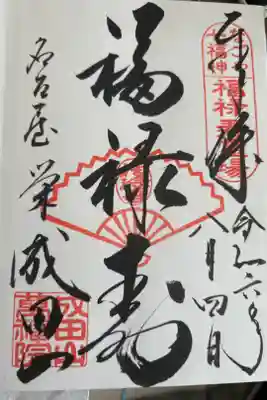 奉拝
福禄寿霊場
令和六年
八月四日
福禄寿
名古屋栄成田山
成田山
萬福院